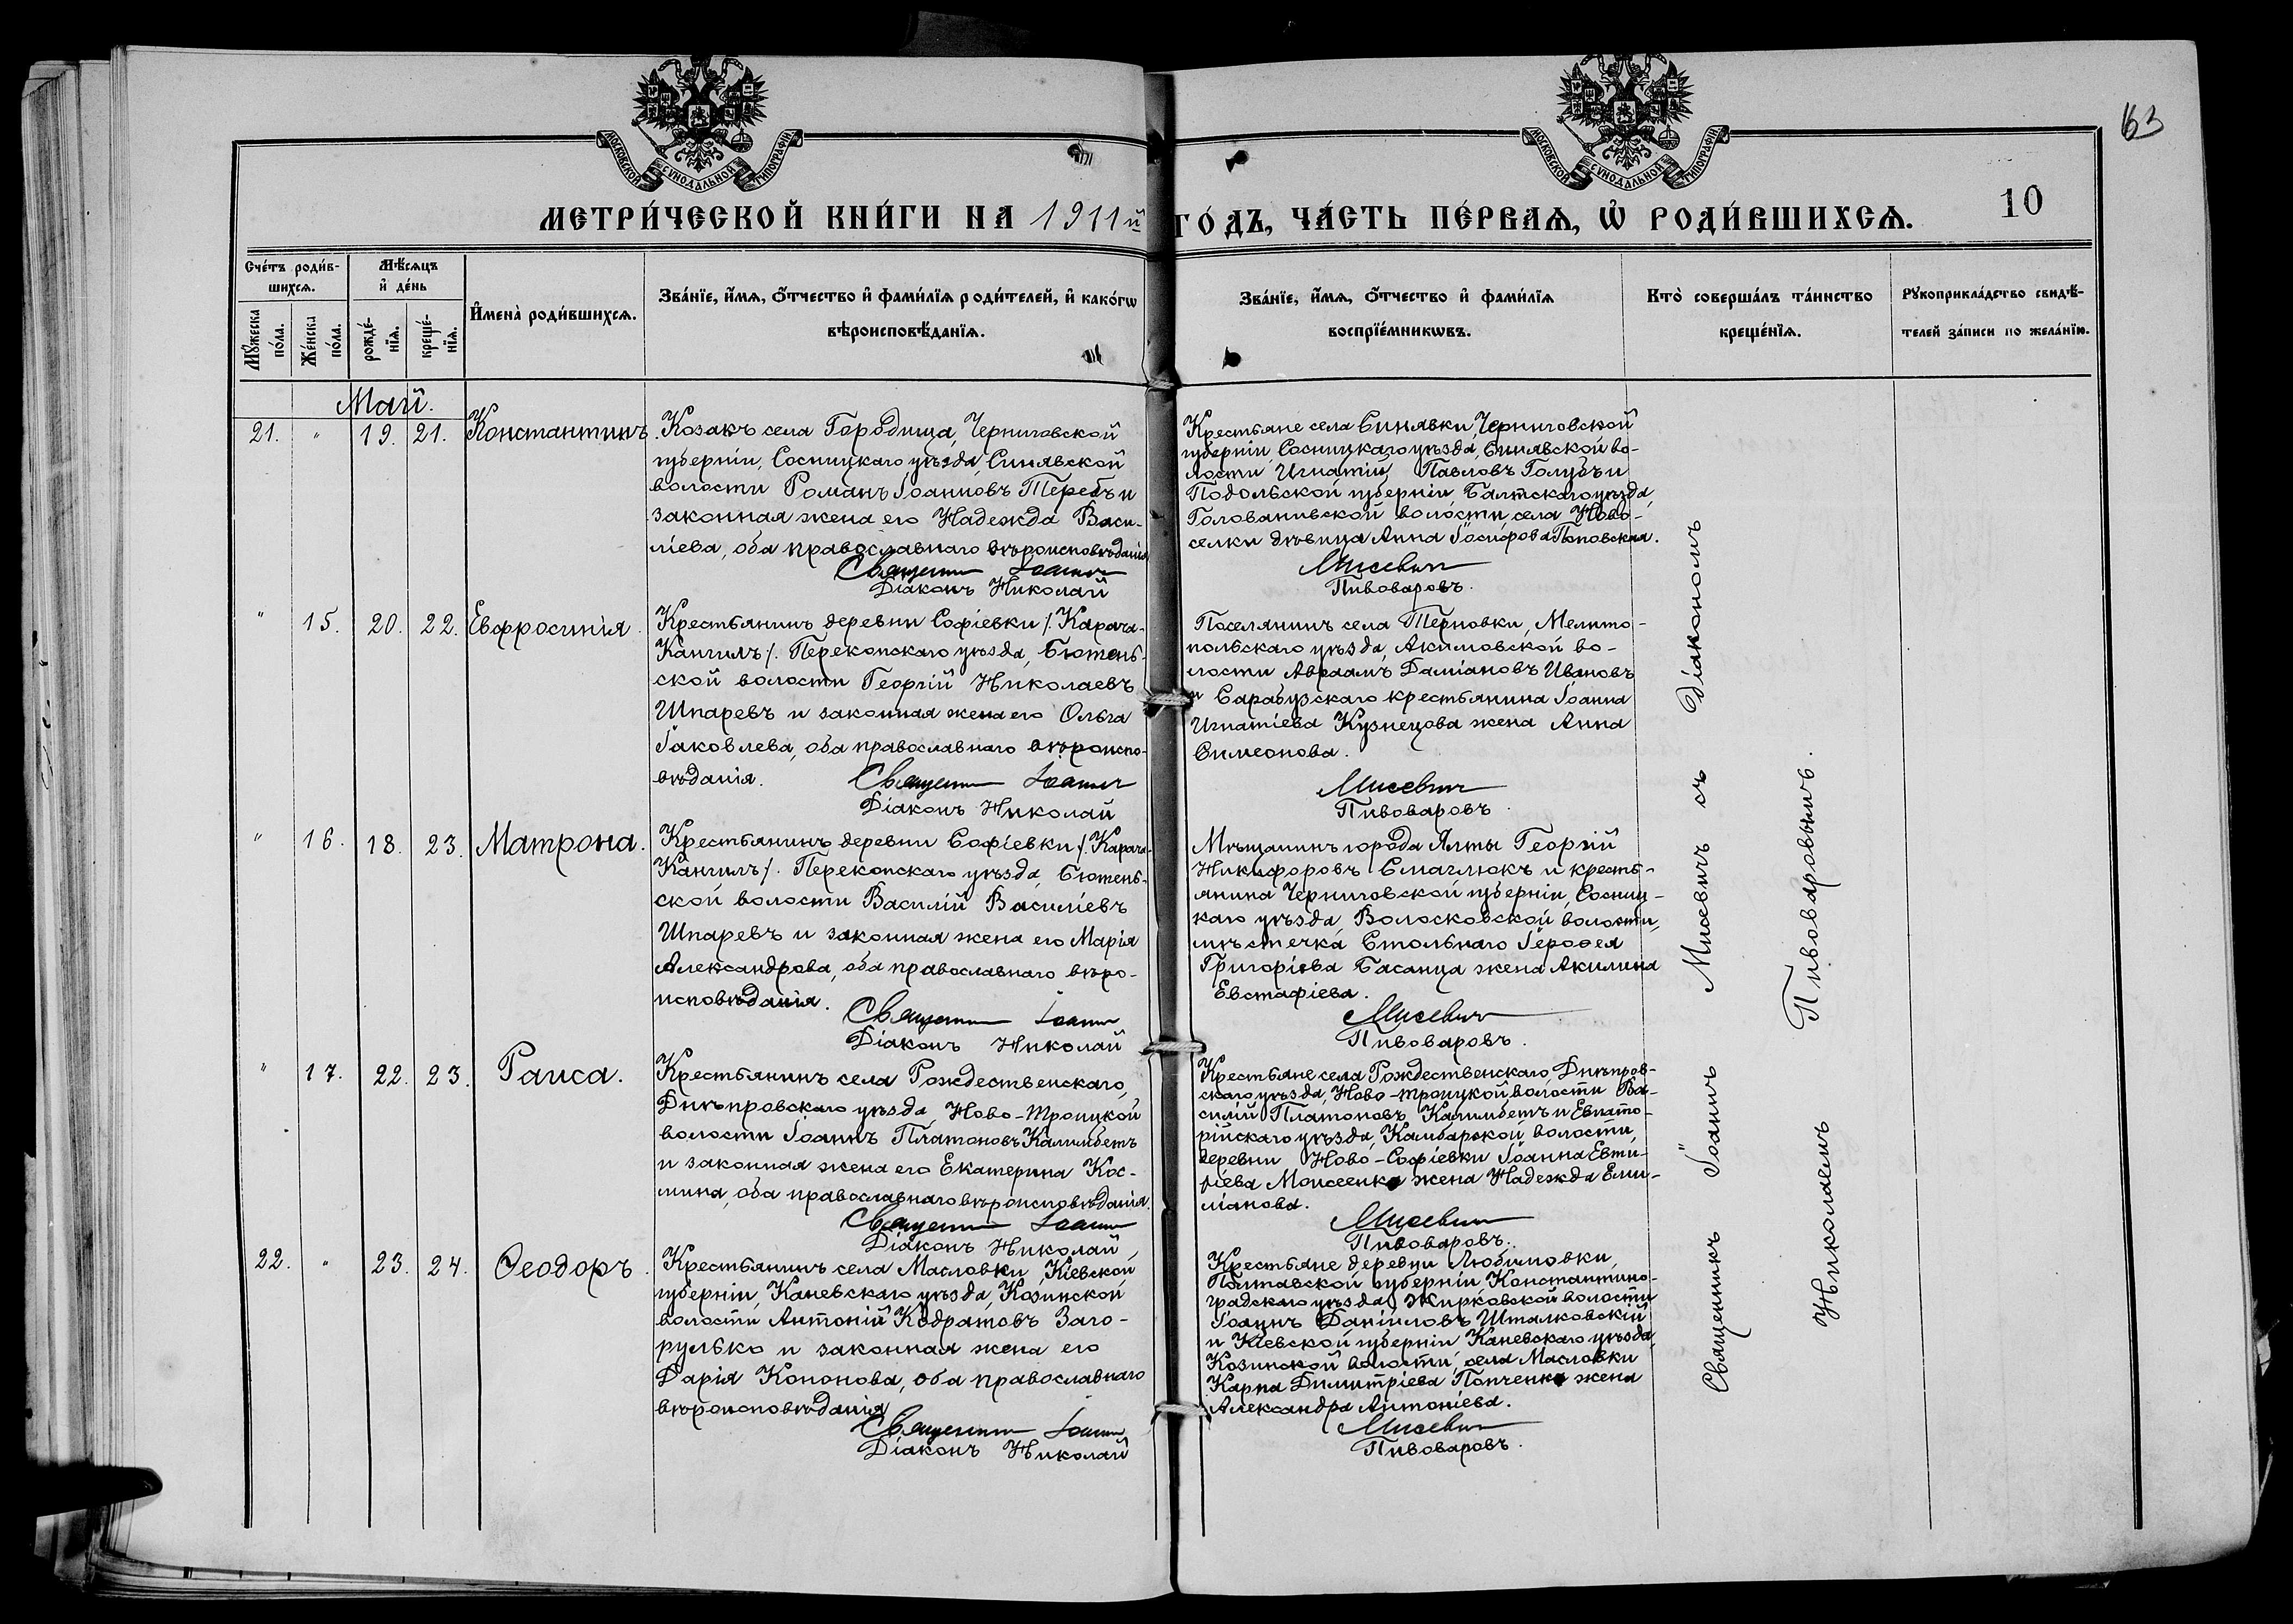 63
МОСКОВСКОЙ СУНОДАЛЬНОЙ ТИПОГРАФІИ
МОСКОВСКОЙ СУНОДАЛЬНОЙ ТИПОГРАФІИ
10
МЕТРИ́ЧЕСКОЙ КНИ́ГИ НА 1911й ГО́ДЪ, ЧА́СТЬ ПЕ́РВАѦ, Ѡ҆ РОДИ́ВШИХСѦ.
Сче́тъ роди́в-
шихсѧ.
Мѣ́сѧцъ
и҆ де́нь
Мꙋ́жеска
по́ла.
Же́нска
по́ла.
рожде́-
нїѧ.
креще́-
нїѧ.
И҆мена̀ роди́вшихсѧ.
Зва́нїе, и҆́мѧ, ѻ҆́тчество и҆ фами́лїѧ роди́телей, и҆ како́гѡ
вѣроисповѣ́данїѧ.
Зва́нїе, и҆́мѧ, ѻ҆́тчество и҆ фами́лїѧ
воспрїе́мникѡвъ.
Кто̀ соверша́лъ та́инство
креще́нїѧ.
Рꙋкоприкла́дство свидѣ́-
телей за́писи по жела́нїю.
Май.
21. " 19. 21. Константинъ.
Козакъ села Городища, Черниговской
губерніи, Сосницкаго уѣзда, Синявской
волости Романъ Іоанновъ Теребъ и
законная жена его Надежда Васи-
ліева, оба православнаго вѣроисповѣданія
Священникъ Іоаннъ
Діаконъ Николай
Крестьяне села Синявки, Черниговской
губерніи, Сосницкаго уѣзда, Синявской во-
лости Игнатій Павловъ Голубъ и
Подольской губерніи, Балтскаго уѣзда,
Голованивской волости, села Ново-
селки дѣвица Анна Іосифова Поповская.
Мисевичъ
Пивоваровъ.
" 15. 20. 22. Евфросинія.
Крестьянинъ деревни Софіевки /. Карача-
Кангилъ /. Перекопскаго уѣзда, Бютень-
ской волости Георгій Николаевъ
Шпаревъ и законная жена его Ольга
Іаковлева, оба православнаго вѣроиспо-
вѣданія.
Священникъ Іоаннъ
Діаконъ Николай
Поселянинъ села Терновки, Мелито-
польскаго уѣзда, Акимовской во-
лости Авраамъ Даміановъ Ивановъ
и Сарабузскаго крестьянина Іоанна
Игнатіева Кузнецова жена Анна
Симеонова.
Мисевичъ
Пивоваровъ.
" 16. 18. 23. Матрона.
Крестьянинъ деревни Софіевки /. Карача-
Кангилъ /. Перекопскаго уѣзда, Бютень-
ской волости Василій Василіевъ
Шпаревъ и законная жена его Марія
Александрова, оба православнаго вѣро-
исповѣданія.
Священникъ Іоаннъ
Діаконъ Николай
Мѣщанинъ города Ялты Георгій
Никифоровъ Смаглюкъ и кресть-
янина Черниговской губерніи, Сосниц-
каго уѣзда, Волосковской волости,
мѣстечка Стольнаго Іерофея
Григоріева Басанца жена Акилина
Евстафіева.
Мисевичъ
Пивоваровъ.
" 17. 22. 23. Раиса.
Крестьянинъ села Рождественскаго,
Днѣпровскаго уѣзда, Ново-Троицкой
волости Іоаннъ Платоновъ Калимбетъ
и законная жена его Екатерина Кос-
мина, оба православнаго вѣроисповѣданія.
Священникъ Іоаннъ
Діаконъ Николай
Крестьяне села Рождественскаго, Днѣпров-
скаго уѣзда, Ново-Троицкой волости Ва-
силій Платоновъ Калимбетъ и Евпато-
рійскаго уѣзда, Камбарской волости,
деревни Ново-Софіевки Іоанна Евти-
хіева Моисеенко жена Надежда Еми-
ліанова.
Мисевичъ
Пивоваровъ.
22. " 23. 24. Ѳеодоръ.
Крестьянинъ села Масловки, Кіевской
губерніи, Каневскаго уѣзда, Козинской
волости Антоній Кодратовъ Заго-
рулько и законная жена его
Дарія Кононова, оба православнаго
вѣроисповѣданія
Священникъ Іоаннъ
Діаконъ Николай
Крестьяне деревни Любимовки,
Полтавской губерніи, Константино-
градскаго уѣзда, Жирковской волости
Іоаннъ Даніиловъ Шталковскій
и Кіевской губерніи Каневскаго уѣзда,
Козинской волости, села Масловки
Карпа Димитріева Попченко жена
Александра Антоніева.
Мисевичъ
Пивоваровъ.
Священникъ Іоаннъ Мисевичъ съ діакономъ
Николаемъ Пивоваровымъ.